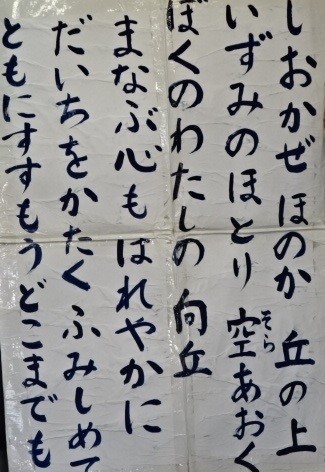 しおかぜほのか 丘の上
いずみのほとり 空あおく
そら
ぼくのわたしの 向丘
まなぶ心もはれやかに
だいちをかたく ふみしめて
ともにすすもうどこまでも